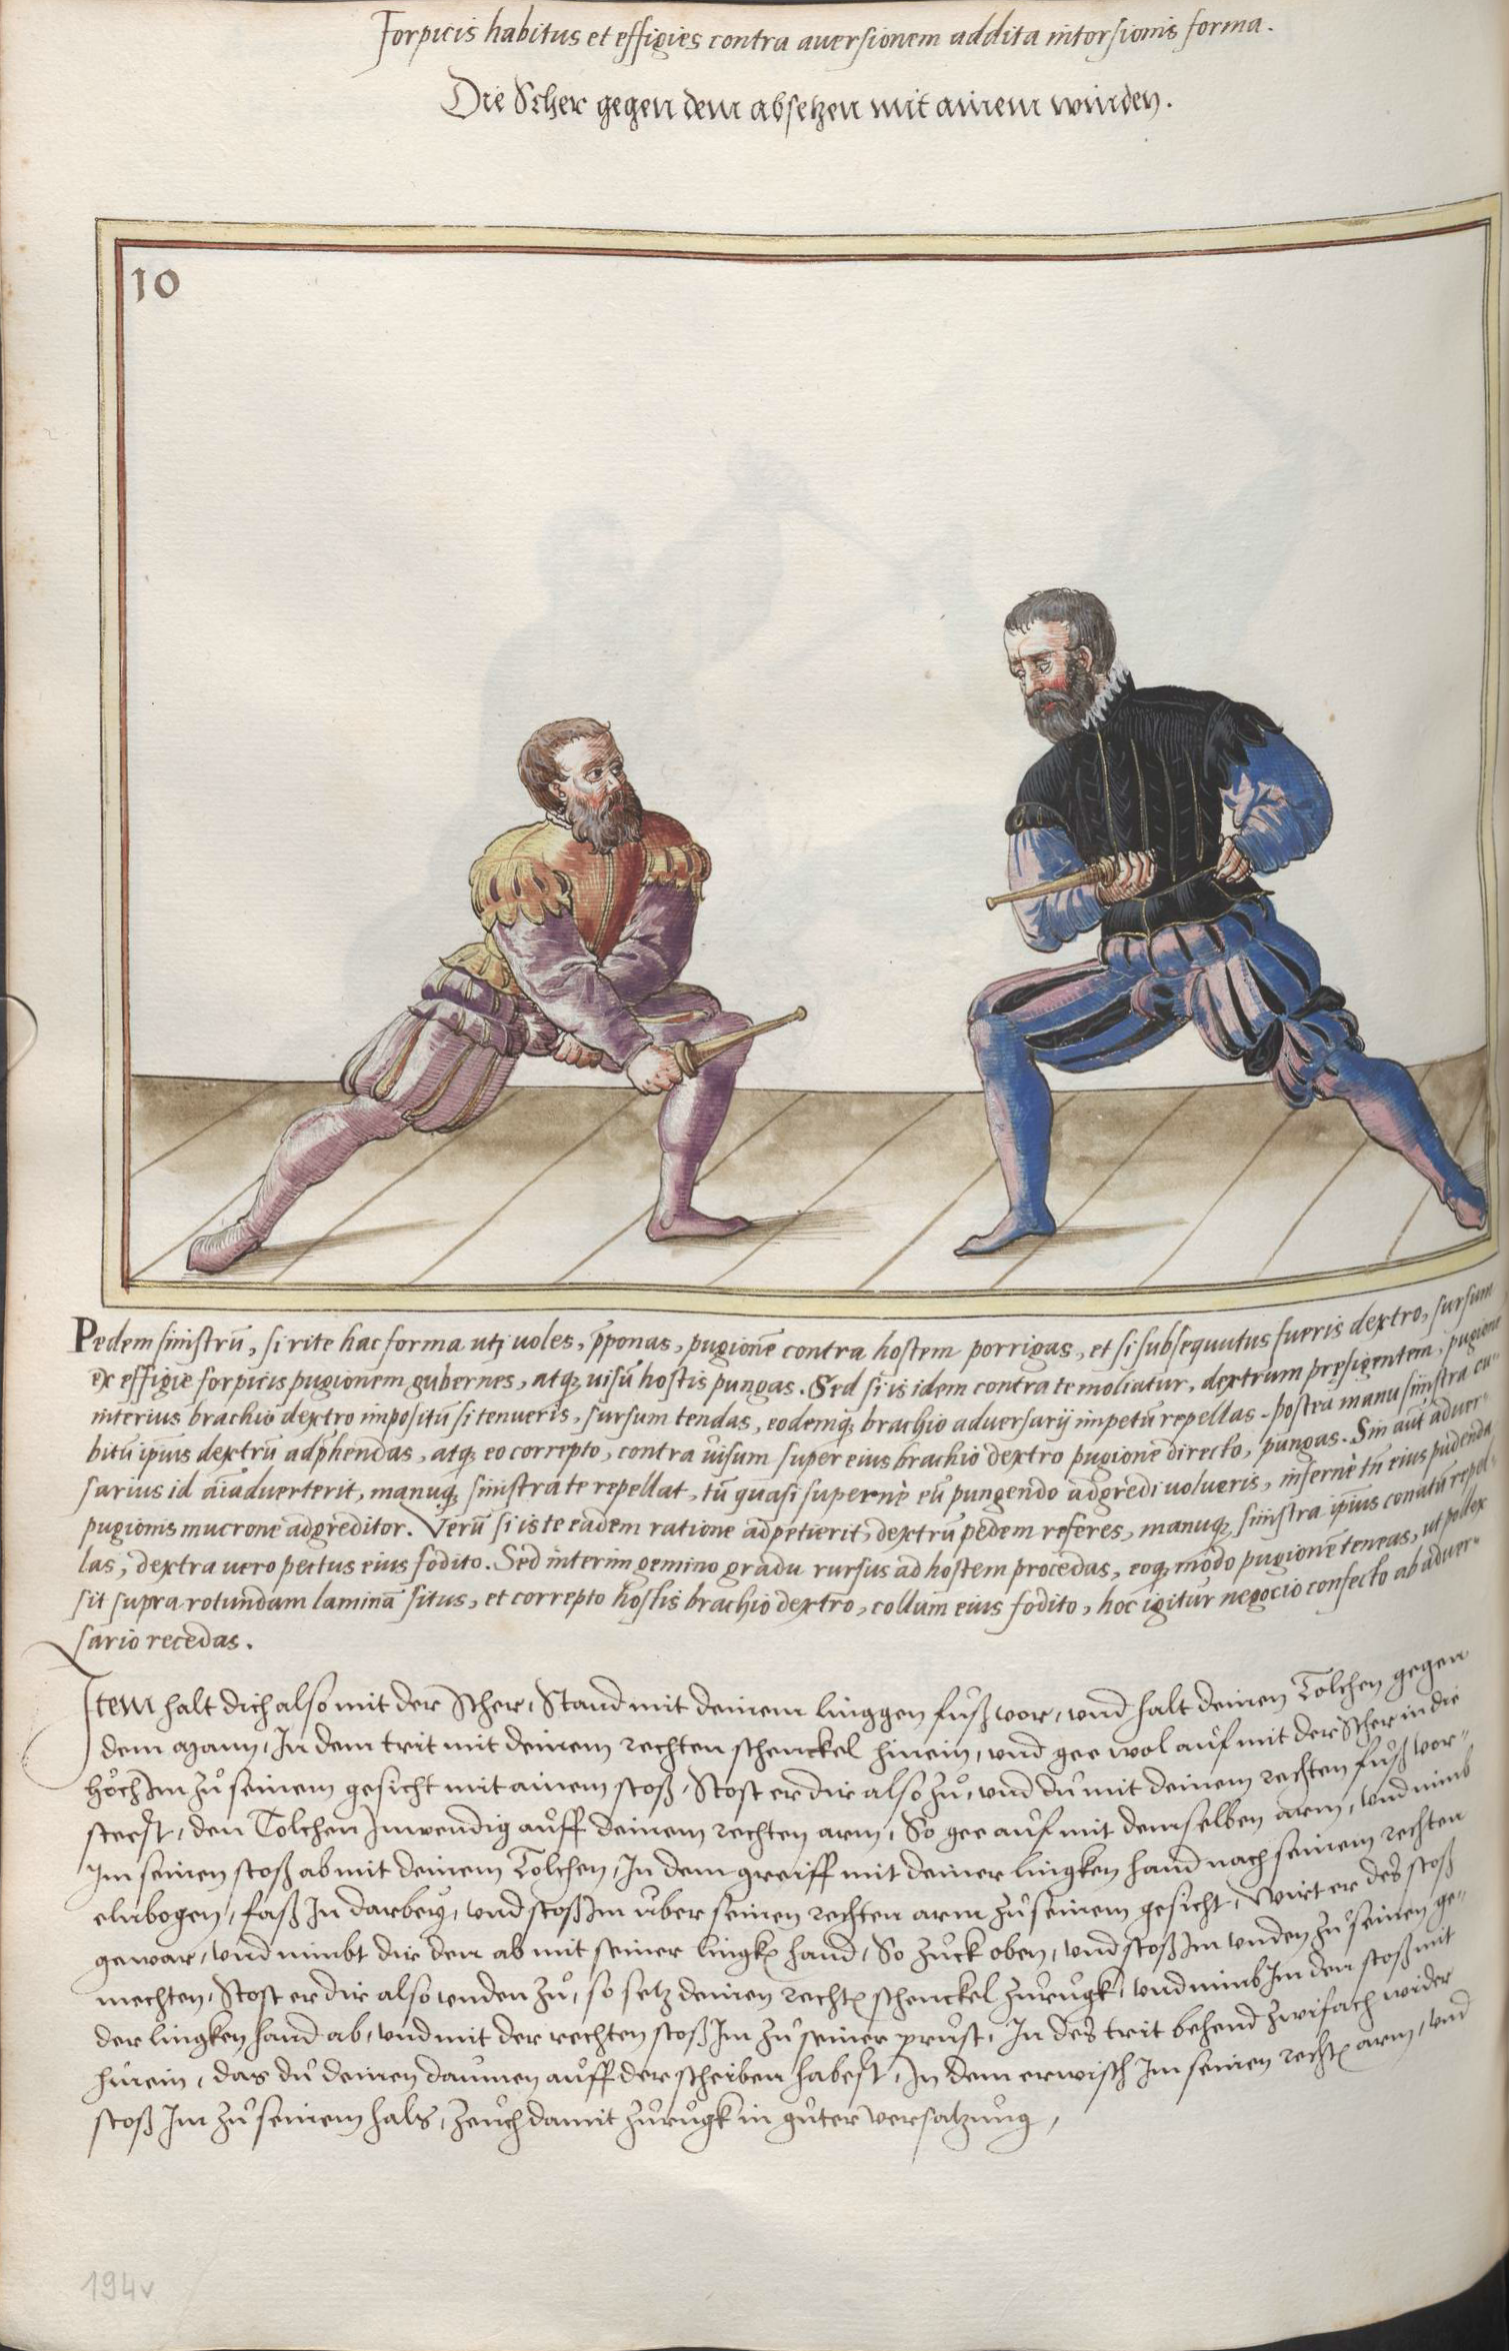 Forpicis habitus et effigies contra auersionem addita intorsionis forma.
Die Scher gegen dem absetzen mit ainem winden.
10
Pedem sinistrũ, si rite hac forma uti uoles, p̃ponas, pugionẽ contra hostem porrigas, et si subsequutus fueris dextro, sursum
ex effigie forpicis pugionem gubernes, atq; uisũ hostis pungas. Sed si is idem contra te moliatur, dextrum pręfigentem, pugione
interius brachio dextro impositũ si tenueris, sursum tendas, eodemq; brachio aduersarij impetũ repellas. postea manu sinistra cu-
bitũ ipsius dextrũ adp̃hendas, atq; eo correpto, contra uisum super eius brachio dextro pugione directo, pungas. Sin aut̃ aduer-
sarius id aĩaduerterit, manuq; sinistra te repellat, tũ quasi supernè eũ pungendo adgredi uolueris, infernè tñ eius pudenda
pugionis mucrone adgreditor. Verũ si is te eadem ratione adpetierit, dextrũ pedem referes, manuq; sinistra ipsius conatũ repel-
las, dextra uero pectus eius fodito. Sed interim gemino gradu rursus ad hostem procedas, eoq; modo pugionẽ teneas, ut pollex
sit supra rotundam laminã situs, et correpto hostis brachio dextro, collum eius fodito, hoc igitur negocio confecto ab aduer-
sario recedas.
Item halt dich also mit der Scher, Stand mit deinem linggen fůß vor, vnd halt deinen Tolchen gegen
dem mann, In dem trit mit deinem rechten schenckel hinein, vnd gee wol auf mit der Scher in die
höch Im zů seinem gesicht mit ainem stoß, Stost er dir also zů, vnd du mit deinem rechten fůß vor-
steest, den Tolchen Inwendig auff deinem rechten arm, So gee auf mit demselben arm, vnd nimb
Im seinen stoß ab mit deinem Tolchen, In dem greiff mit deiner lingken hand nach seinem rechten
elnbogen, faß In darbey, vnd stoß Im vber seinen rechten arm zů seinem gesicht, Wirt er des stoß
gewar, vnd nimbt dir den ab mit seiner lingkn hand, So zuck oben, vnd stoß Im vnden zů seinen ge-
mechten, Stost er dir also vnden zů, so setz deinen rechtn schenckel zurugk, vnd nimb Im den stoß mit
der lingken hand ab, vnd mit der rechten stoß Im zů seiner prust, In des trit behend zwifach wider
hinein, das du deinen daumen auff der scheiben habest, In dem erwisch Im seinen rechtn arm, vnd
stoß Im zů seinem hals, zeuch damit zurugk in gůter versatzung,
194v